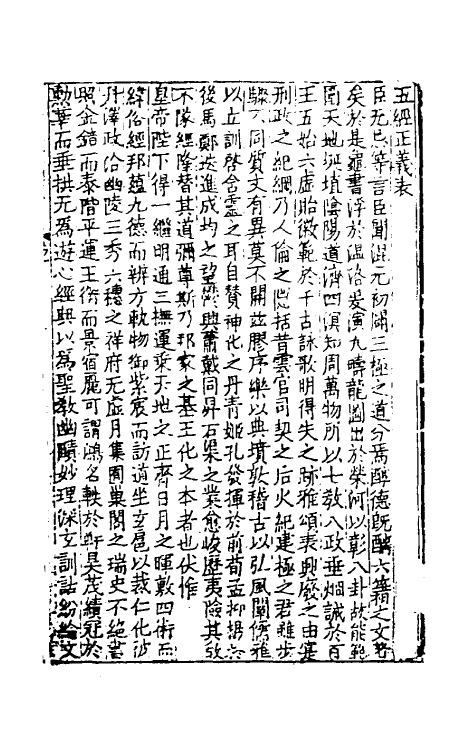 五經正義表
臣无忌等言臣聞混元初闢三極之道分焉醇德旣醨六籍之文著
矣於是龜書浮於温洛爰演九疇龍圖出於榮河以彰八卦故能範
圍天地埏埴陰陽道濟四溟知周萬物所以七教八政垂烱誡於百
王五始六虚貽徽範於千古詠歌明得失之跡雅頌表興廢之由寔
刑政之紀綱乃人倫之隠括昔雲官司契之后火紀建極之君雖步
驟不同質文有異莫不開兹膠序樂以典墳敦稽古以弘風闡儒雅
以立訓啓含靈之耳目賛神化之丹青姬孔發揮於前荀孟抑揚於
後馬鄭迭進成均之望蔚興蕭戴同昇石渠之業愈峻歴夷險其教
不隊經隆替其道彌尊斯乃邦家之基王化之本者也伏惟
皇帝陛下得一繼明通三撫運乗天地之正齊日月之暉敷四術而
緯俗經邦藴九德而辨方軌物御紫宸而訪道坐玄扈以裁仁化被
丹澤政洽幽陵三秀六穗之祥府无虚月集囿巢閣之瑞史不絶書
照金鏡而泰階平運玉衡而景宿麗可謂鴻名軼於軒昊茂績冠於
勲華而垂拱无爲遊心經典以爲聖教幽賾妙理深玄訓詁紛綸文